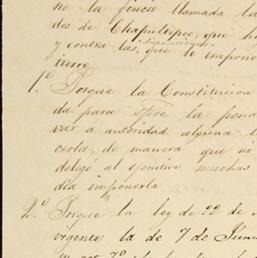 no la finca llamada la
des de Chapultepec, que h
disposiciones
y contra las, que le impone
ierro
1º. Porque la Constitucion
da para spre la pena
var a autoridad alguna l
cerla, de manera que ni
delegó al ejecutivo muchas
día imponerla
2º. Porque la ley de 22 de
vigente la de 7 de Juni